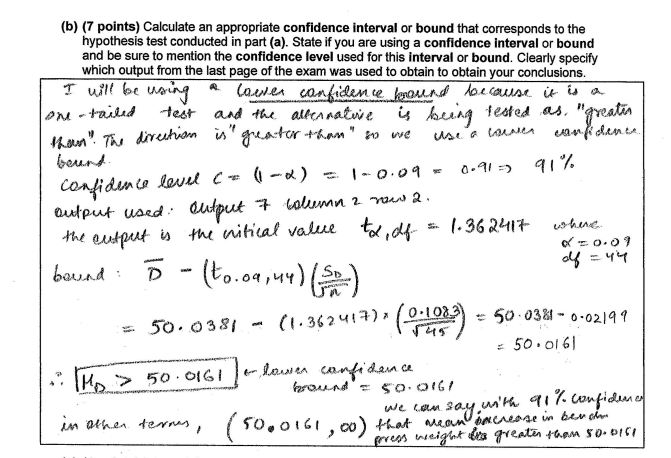 (b) (7 points) Calculate an appropriate confidence interval or bound that corresponds to the
hypothesis test conducted in part (a). State if you are using a confidence interval or bound
and be sure to mention the confidence level used for this interval or bound. Clearly specify
which output from the last page of the exam was used to obtain to obtain your conclusions.
I will be using a lower confidence bound because it is a
one-tailed test and the alternative is being tested as "greater
than". The direction is "greater than" so we use a lower confidence
bound.
confidence level C = (1-α) = 1-0.09 = 0.91 ⇒ 91%
output used: Output 7 column 2 row 2.
the output is the critical value tα,df = 1.362417 where
α = 0.09
df = 44
bound : D̅ - (t0.09,44) (SD/√n)
= 50.0381 - (1.362417) × (0.1083/√45) = 50.0381 - 0.02199
= 50.0161
∴ μD > 50.0161 ← lower confidence
bound = 50.0161
we can say with 91% confidence
in other terms, (50.0161, ∞) that mean increase in bench
press weight is greater than 50.0161